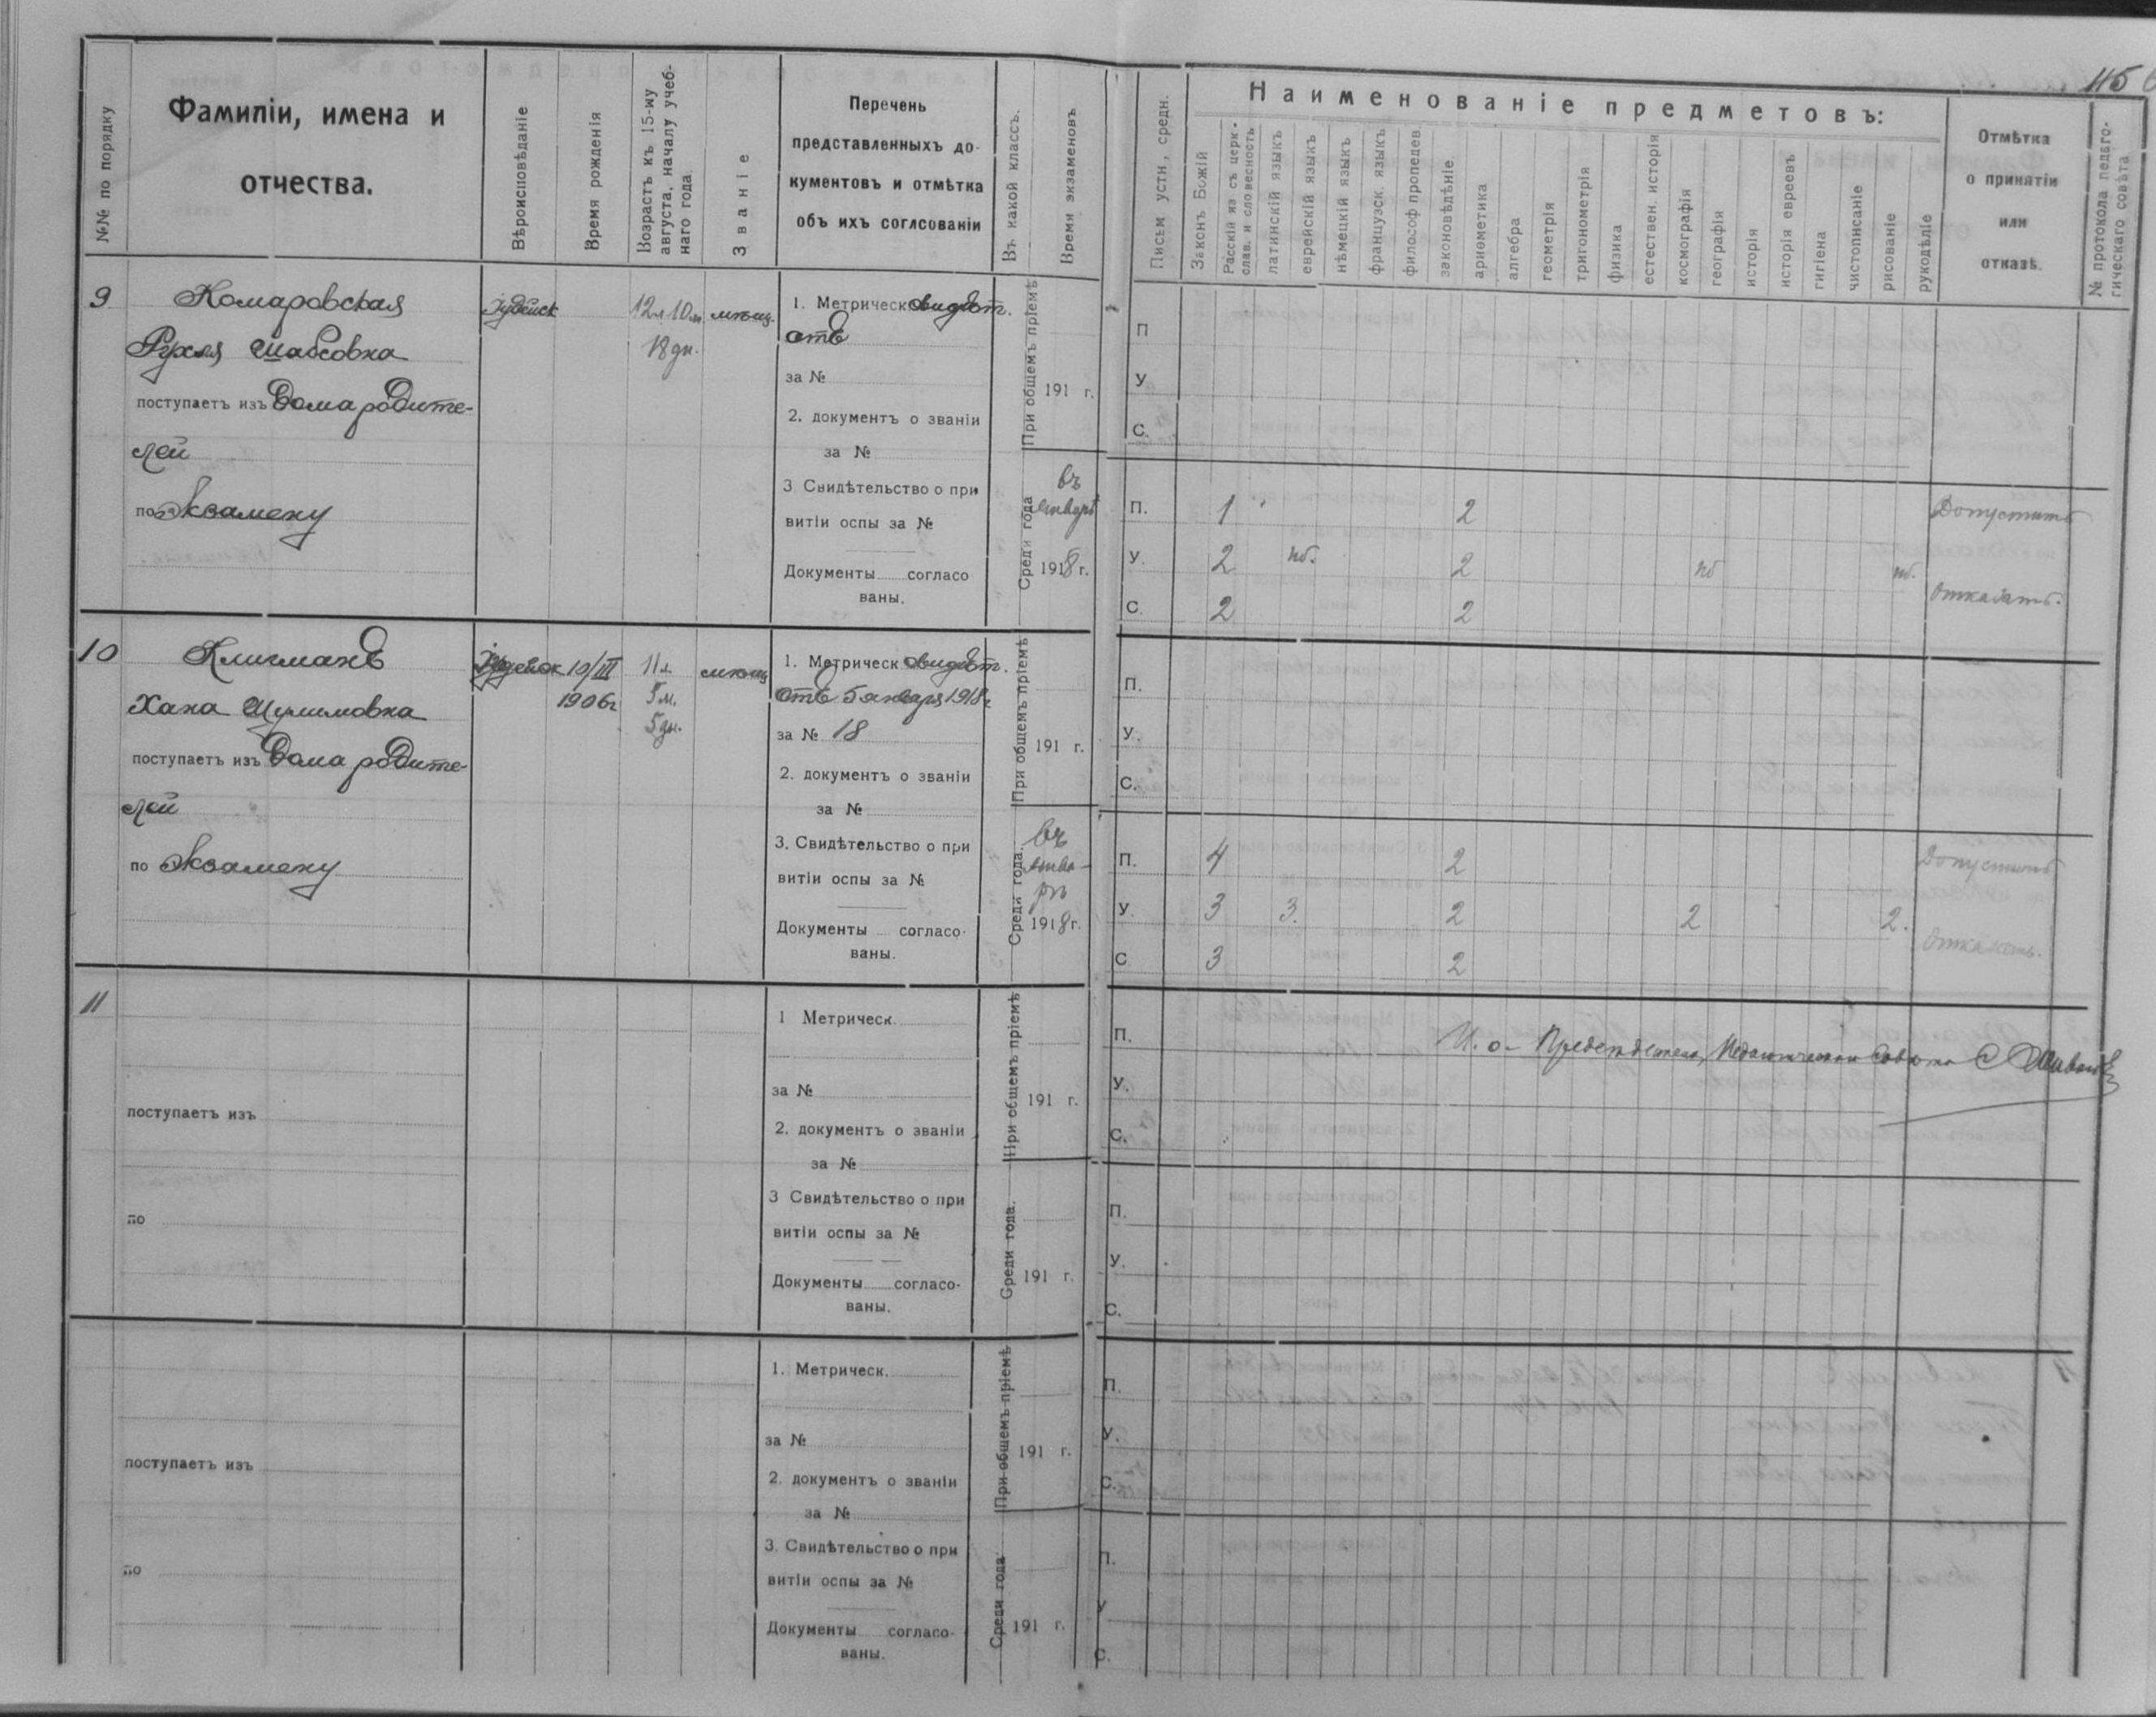 115
№№ по порядку
Фамиліи, имена и
отчества.
Вѣроисповѣданіе
Время рожденія
Возрастъ къ 15-му
августа, началу учеб-
наго года.
Званіе
Перечень
представленныхъ до-
кументовъ и отмѣтка
объ ихъ соглсованіи
Въ какой классъ.
Время экзаменовъ
Письм устн, средн.
Наименованіе предметовъ:
Законъ Божій
Расскій яз съ церк-
слав. и словесность
латинскій языкъ
еврейскій языкъ
нѣмецкій языкъ
французск. языкъ
философ пропедев.
законовѣдѣніе.
ариѳметика
алгебра
геометрія
тригонометрія
физика
естествен. исторія
космографія
географія
исторія
исторія евреевъ
гигіена
чистописаніе
рисованіе
рукодѣліе
Отмѣтка
о принятіи
или
отказѣ.
№ протокола педаго-
гическаго совѣта
9
Комаровская
Рухля Шабсовна
поступаетъ изъ дома родите-
лей
по экзамену
Іудейск
12 л 10 м
18 дн.
мѣщ.
1. Метрическ свидѣт.
отъ
за №
2. документъ о званіи
за №
3 Свидѣтельство о при
витіи оспы за №
Документы согласо
ваны.
При общемъ пріемѣ
191 г.
Среди года
въ
январѣ
1918 г.
П
У
С.
П. 1 2
У. 2 нб. 2 нб нб.
С. 2 2
Допустить
Отказать.
10
Клигманъ
Хана Шулимовна
поступаетъ изъ дома родите-
лей
по экзамену
Іудейск
10/III
1906 г
11 л.
5 м.
5 дн.
мѣщ
1. Метрическ свидѣт.
отъ 5 января 1918 г.
за № 18
2. документъ о званіи
за №
3. Свидѣтельство о при
витіи оспы за №
Документы согласо-
ваны.
При общемъ пріемѣ
191 г.
Среди года.
въ
янва-
рѣ
1918 г.
П.
У.
С.
П. 4 2
У. 3 3. 2 2 2.
С 3 2
Допустить
Отказать.
11
поступаетъ изъ
по
1 Метрическ.
за №
2. документъ о званіи
за №
3 Свидѣтельство о при
витіи оспы за №
Документы согласо-
ваны.
При общемъ пріемѣ
191 г.
Среди года.
191 г.
П.
И. о. Предсѣдателя Педагогическаго Совѣта
У.
С.
П.
У.
С.
поступаетъ изъ
по
1. Метрическ.
за №
2. документъ о званіи
за №
3. Свидѣтельство о при
витіи оспы за №
Документы согласо-
ваны.
При общемъ пріемѣ
191 г.
Среди года.
191 г.
П.
У.
С.
П.
У
С.